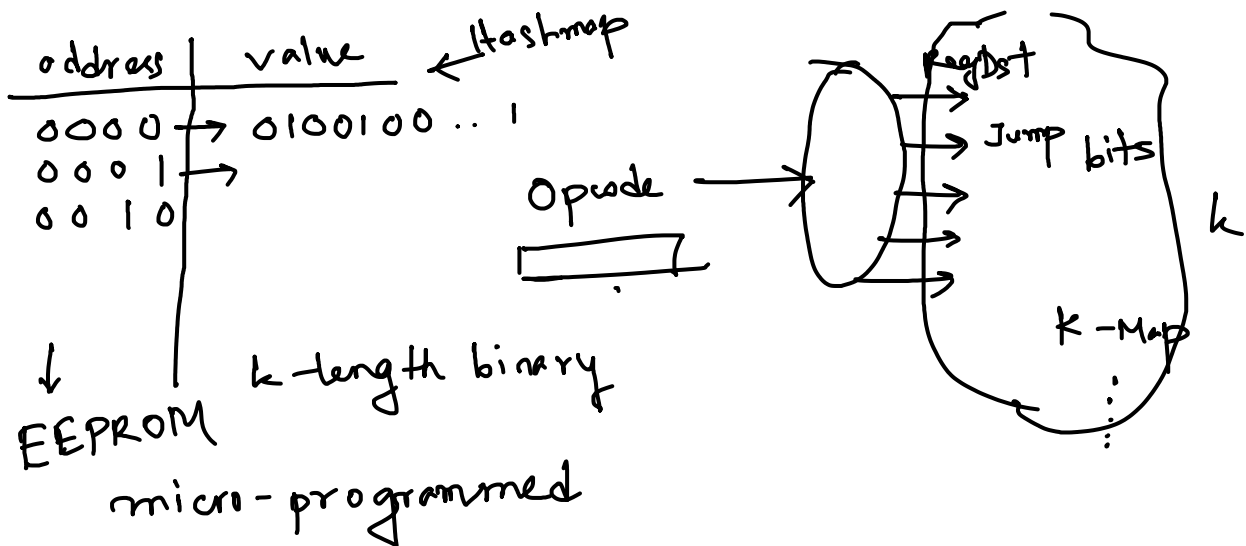 address value ← Hashmap
0000 → 0100100.. 1
0001 →
0010
↓
EEPROM
k-length binary
micro-programmed
Opcode →
RegDst
Jump bits
k
K-Map